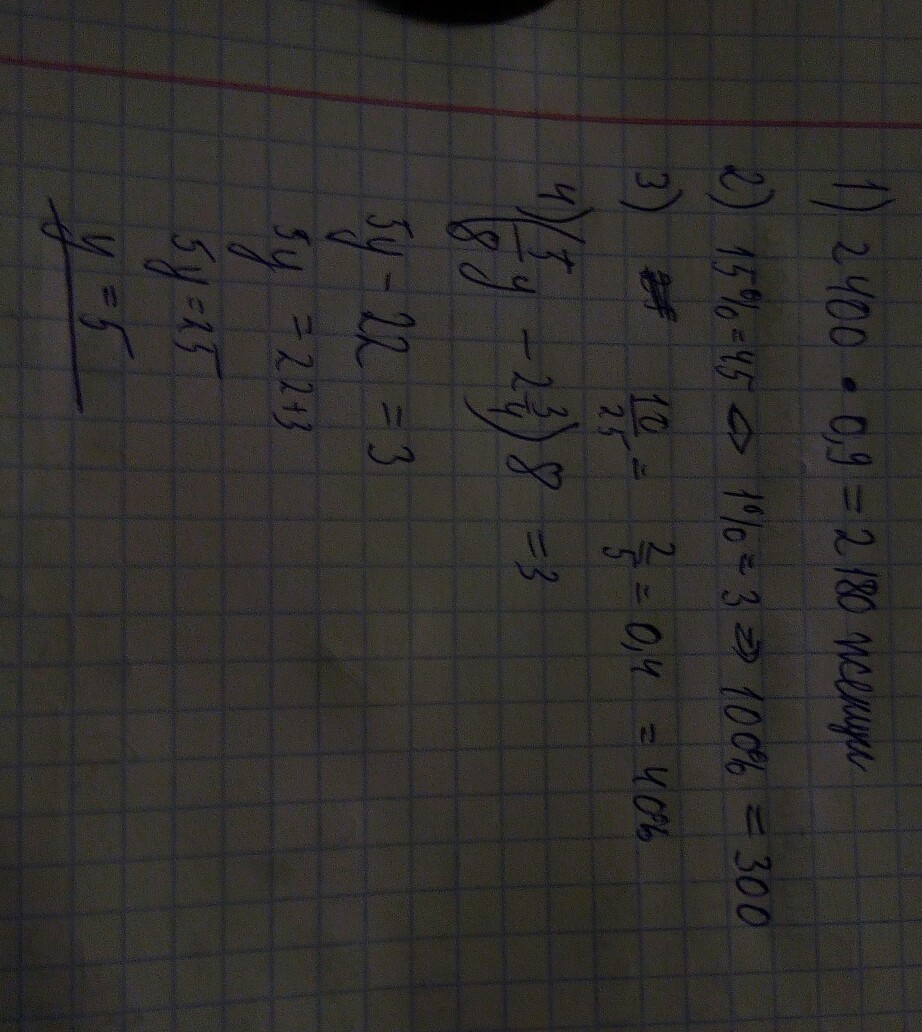 1) 2400 • 0,9 = 2180 женщин
2) 15% = 45 ⇔ 1% = 3 ⇒ 100% = 300
3) 10/25 = 2/5 = 0,4 = 40%
4) (5/8 y - 2 3/4) 8 = 3
5y - 22 = 3
5y = 22+3
5y = 25
y = 5